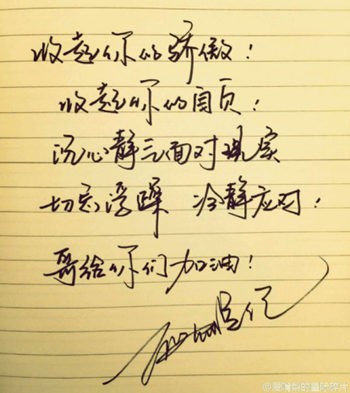 收起你的骄傲！
收起你的自负！
沉心静气面对现实
切忌浮躁 冷静应对！
哥给你们加油！